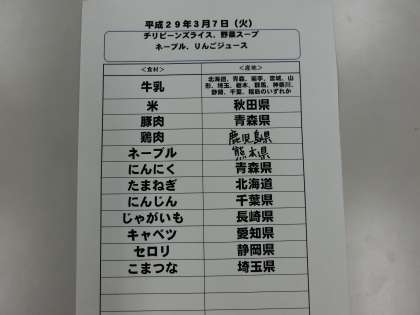 平成29年3月7日(火)
チリビーンズライス、野菜スープ
ネーブル、りんごジュース
<食材> <産地>
牛乳 北海道、青森、岩手、宮城、山形、埼玉、栃木、群馬、神奈川、静岡、千葉、福島のいずれか
米 秋田県
豚肉 青森県
鶏肉 鹿児島県
ネーブル 熊本県
にんにく 青森県
たまねぎ 北海道
にんじん 千葉県
じゃがいも 長崎県
キャベツ 愛知県
セロリ 静岡県
こまつな 埼玉県